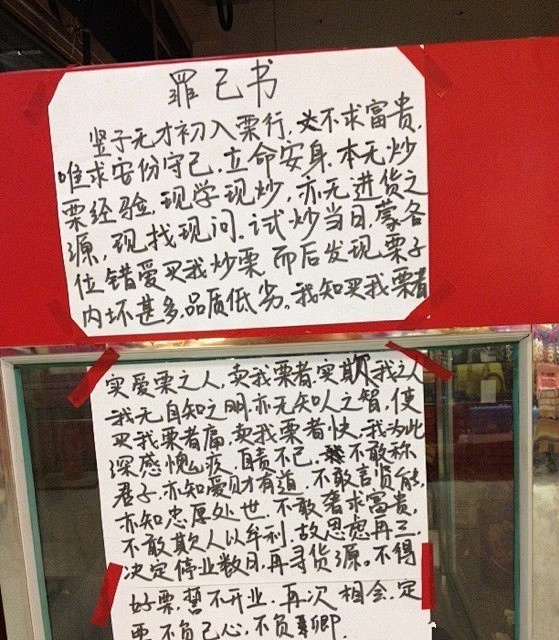 罪己书
竖子无才初入栗行,不求富贵,
唯求安份守己,立命安身,本无炒
栗经验,现学现炒,亦无进货之
源,现找现问,试炒当日,蒙各
位错爱买我炒栗,而后发现栗子
内坏甚多,品质低劣。我知买我栗者
实爱栗之人,卖我栗者,实欺我之人
我无自知之明,亦无知人之智,使
买我栗者痛,卖我栗者快,我为此
深感愧疚,自责不已,不敢称
君子,亦知爱财有道,不敢言贤能,
亦知忠厚处世,不敢奢求富贵,
不敢欺人以牟利,故思虑再三
决定停业数日,再寻货源。不得
好栗,誓不开业,再次相会,定
不负己心,不负卿